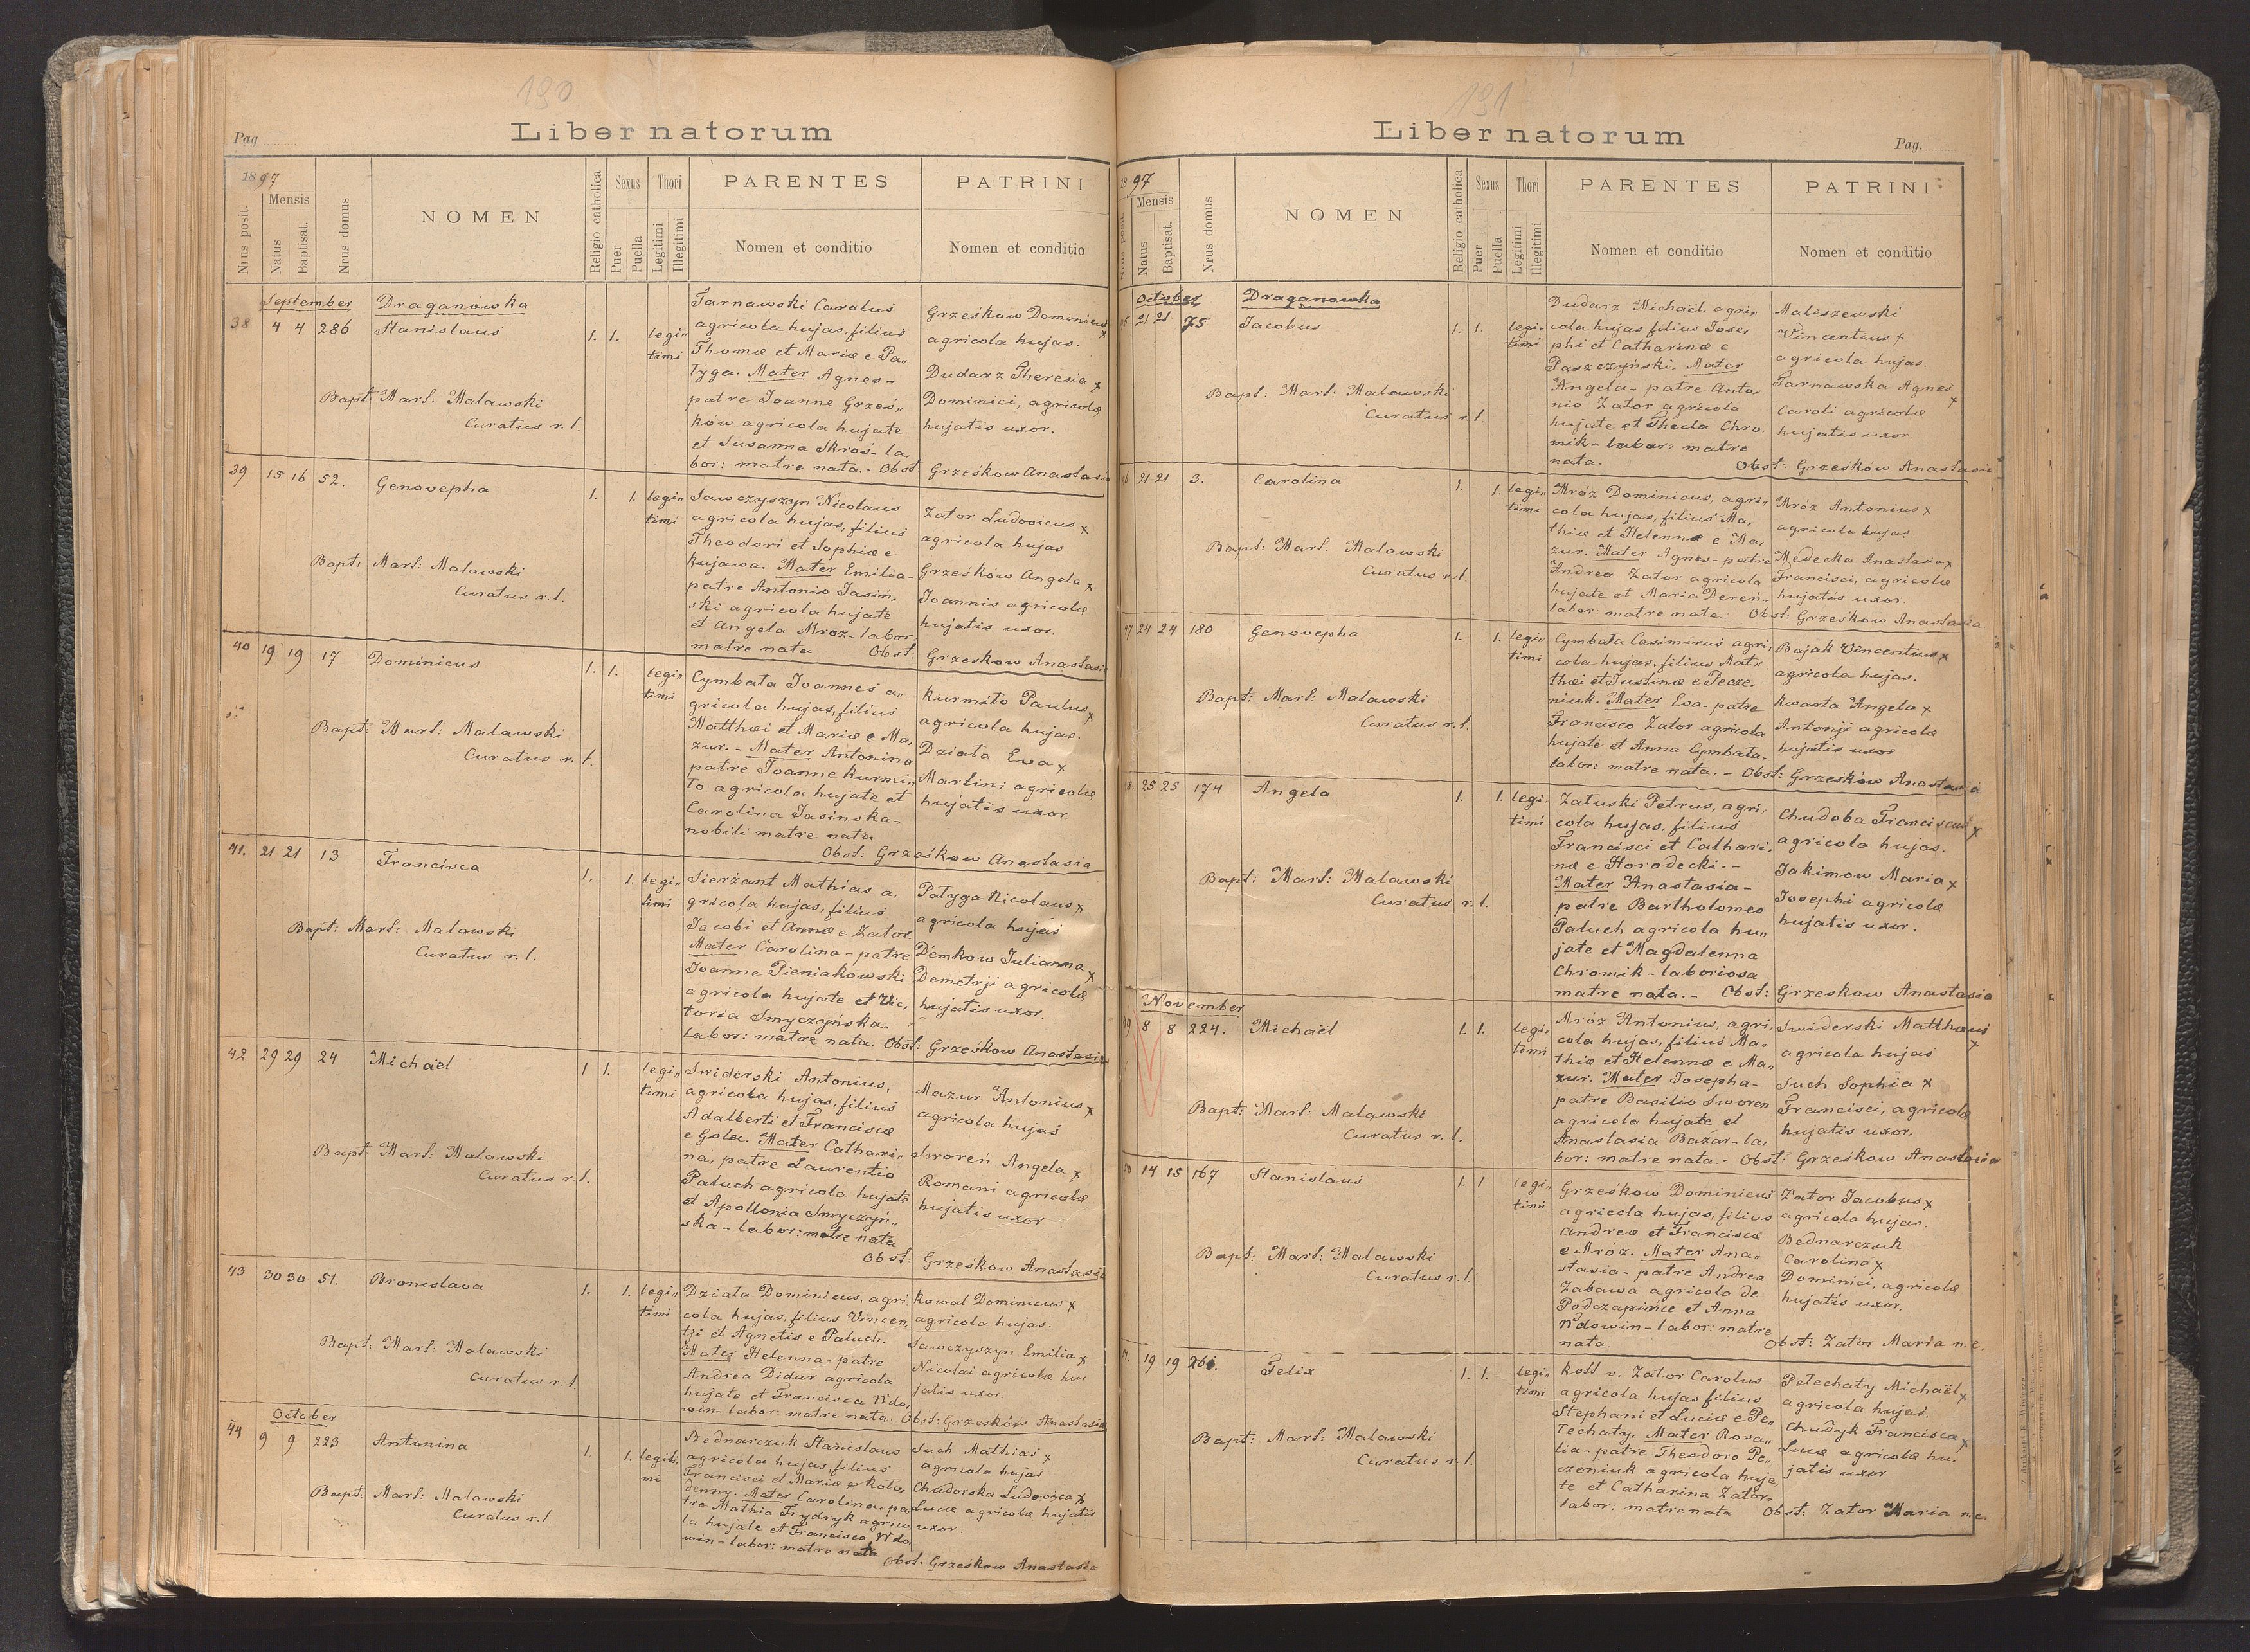 190
Liber natorum
Pag
1897
Nrus posit.
Mensis
Natus
Baptisat.
Nrus domus
NOMEN
Religio catholica
Sexus
Puer
Puella
Thori
Legitimi
Illegitimi
PARENTES
Nomen et conditio
PATRINI
Nomen et conditio
September
Draganówka
38 4 4 286 Stanislaus 1. 1. legi„
timi
Bapt: Mart: Malawski
Curatus r. l.
Tarnawski Carolus
agricola hujas, filius
Thomæ et Mariæ e Pa„
tyga. Mater Agnes –
patre Joanne Grześ„
ków agricola hujate
et Susanna Skroś – la
bor: matre nata. – Obst: Grześkow Anastasia
Grześkow Dominicus x
agricola hujas.
Dudarz Theresia x
Dominici, agricolæ
hujatis uxor.
39 15 16 52. Genovepha 1. 1. legi„
timi
Bapt: Mart: Malawski
Curatus r. l.
Sawczyszyn Nicolaus
agricola hujas, filius
Theodori et Sophiæ e
Kujawa. Mater Emilia –
patre Antonio Jasiń,
ski agricola hujate
et Angela Mroz – labor:
matre nata Obst: Grzeskow Anastasia
Zator Ludovicus x
agricola hujas.
Grześków Angela x
Joannis agricolæ
hujatis uxor.
40 19 19 17 Dominicus 1. 1. legi„
timi
Bapt: Mart: Malawski
Curatus r. l.
Cymbała Joannes a„
gricola hujas, filius
Matthæi et Mariæ e Ma,
zur. – Mater Antonina
patre Joanne Kurmi„
to agricola hujate et
Carolina Jasinska –
nobili matre nata
Obst: Grześkow Anastasia
Kurmito Paulus x
agricola hujas.
Dziata Eva x
Martini agricolæ
hujatis uxor
41. 21 21 13 Francisca 1. 1. legi„
timi
Bapt: Mart: Malawski
Curatus r. l.
Sierżant Mathias a,
gricola hujas, filius
Jacobi et Annæ e Zator
Mater Carolina – patre
Joanne Pieniakowski
agricola hujate et Vic,
toria Smyczyńska –
labor: matre nata. Obst: Grześkow Anastasia
Patyga Nicolaus x
agricola hujas
Demkow Julianna x
Demetrji agricolæ
hujatis uxor.
42 29 29 24 Michaël 1 1. legi„
timi
Bapt: Mart: Malawski
Curatus r. l.
Swiderski Antonius,
agricola hujas, filius
Adalberti et Franciscæ
e Gola. Mater Cathari„
na, patre Laurentio
Paluch agricola hujate
et Apollonia Smyczyń„
ska – labor: matre nata
Obst: Grześkow Anastasia
Mazur Antonius x
agricola hujas
Sworeń Angela x
Romani agricolæ
hujatis uxor
43 30 30 51. Bronislava 1. 1. legi„
timi
Bapt: Mart: Malawski
Curatus r. l.
Dziata Dominicus, agri
cola hujas, filius Vincen,
tji et Agnetis e Paluch.
Mater Helenna – patre
Andrea Didur agricola
hujate et Francisca Wdo,
win – labor: matre nata. Obst: Grzesków Anastasia
Kowal Dominicus x
agricola hujas.
Sawczyszyn Emilia x
Nicolai agricolæ hu„
jatis uxor.
October
44 9 9 223 Antonina 1. 1. legiti,
mi
Bapt: Mart: Malawski
Curatus r. l.
Bednarczuk Stanislaus
agricola hujas, filius
Francisci et Mariæ e Koło,
denny. Mater Carolina – pa,
tre Mathia Frydryk agrico,
la hujate et Francisca Wdo,
win – labor: matre nata
Obst. Grześkow Anastasia
Such Mathias x
agricola hujas
Chudorska Ludovica x
Lucæ agricolæ hujatis
uxor.
191
Liber natorum
Pag.
1897
Nrus posit.
Mensis
Natus
Baptisat.
Nrus domus
NOMEN
Religio catholica
Sexus
Puer
Puella
Thori
Legitimi
Illegitimi
PARENTES
Nomen et conditio
PATRINI
Nomen et conditio
October
Draganowka
5 21 21 75 Jacobus 1. 1. legi„
timi
Bapt: Mart: Malawski
Curatus r. l.
Dudarz Michaël. agri„
cola hujas filius Jose,
phi et Catharinæ e
Paszczyński. Mater
Angela – patre Anto,
nio Zator agricola
hujate et Thecla Chro,
mik – labor: matre
nata. Obst: Grześków Anastasia
Maliszewski
Vincentius x
agricola hujas.
Tarnawska Agnes x
Caroli agricolæ
hujatis uxor.
6 21 21 3. Carolina 1. 1. legi„
timi
Bapt: Mart: Malawski
Curatus r. l.
Mróz Dominicus, agri„
cola hujas, filius Ma,
thiæ et Helennæ e Ma,
zur. Mater Agnes – patre
Andrea Zator agricola
hujate et Maria Dereń –
labor: matre nata. – Obst: Grześkow Anastasia
Mróz Antonius x
agricola hujas.
Medecka Anastasia x
Francisci, agricolæ
hujatis uxor.
7 24 24 180 Genovepha 1. 1. legi„
timi
Bapt: Mart: Malawski
Curatus r. l.
Cymbała Casimirus agri,
cola hujas, filius Mat„
thæi et Justinæ e Pecze,
niuk. Mater Eva – patre
Francisco Zator agricola
hujate et Anna Cymbała –
labor: matre nata. – Obst: Grześków Anastasia
Bajak Vincentius x
agricola hujas.
Kwarta Angela x
Antonji agricolæ
hujatis uxor
8. 25 25 174 Angela 1. 1. legi,
timi
Bapt: Mart: Malawski
Curatus r. l.
Załuski Petrus, agri,
cola hujas, filius
Francisci et Cathari,
næ e Horodecki. –
Mater Anastasia –
patre Bartholomeo
Paluch agricola hu„
jate et Magdalenna
Chromik – laboriosa
matre nata. – Obst: Grzeskow Anastasia
Chudoba Franciscus x
agricola hujas.
Jakimow Maria x
Josephi agricolæ
hujatis uxor.
November
19 8 8 224. Michaël 1. 1. legi,
timi
Bapt: Mart: Malawski
Curatus r. l.
Mróz Antonius, agri,
cola hujas, filius Ma„
thiæ et Helennæ e Ma„
zur. Mater Josepha –
patre Basilio Sworen
agricola hujate et
Anastasia Bazar – la,
bor: matre nata. – Obst: Grześkow Anastasia
Swiderski Matthæus x
agricola hujas
Such Sophia x
Francisci, agricolæ
hujatis uxor.
50 14 15 167 Stanislaus 1. 1 legi,
timi
Bapt: Mart: Malawski
Curatus r. l.
Grześkow Dominicus
agricola hujas, filius
Andreæ et Franciscæ
e Mróz. Mater Ana„
stasia – patre Andrea
Zabawa agricola de
Podczapińce et Anna
Wdowin – labor: matre
nata. Obst: Zator Maria n. e.
Zator Jacobus x
agricola hujas.
Bednarczuk
Carolina x
Dominici, agricolæ
hujatis uxor.
51. 19 19 261. Felix 1. 1. legi„
timi
Bapt: Mart: Malawski
Curatus r. l.
Kott v. Zator Carolus
agricola hujas filius
Stephani et Luciæ e Pe„
techaty. Mater Rosa„
lia – patre Theodoro Pe„
czeniuk agricola huja,
te et Catharina Zator –
labor: matre nata Obst: Zator Maria n. e.
Petechaty Michaël x
agricola hujas.
Chudyk Francisca x
Lucæ agricolæ hu,
jatis uxor